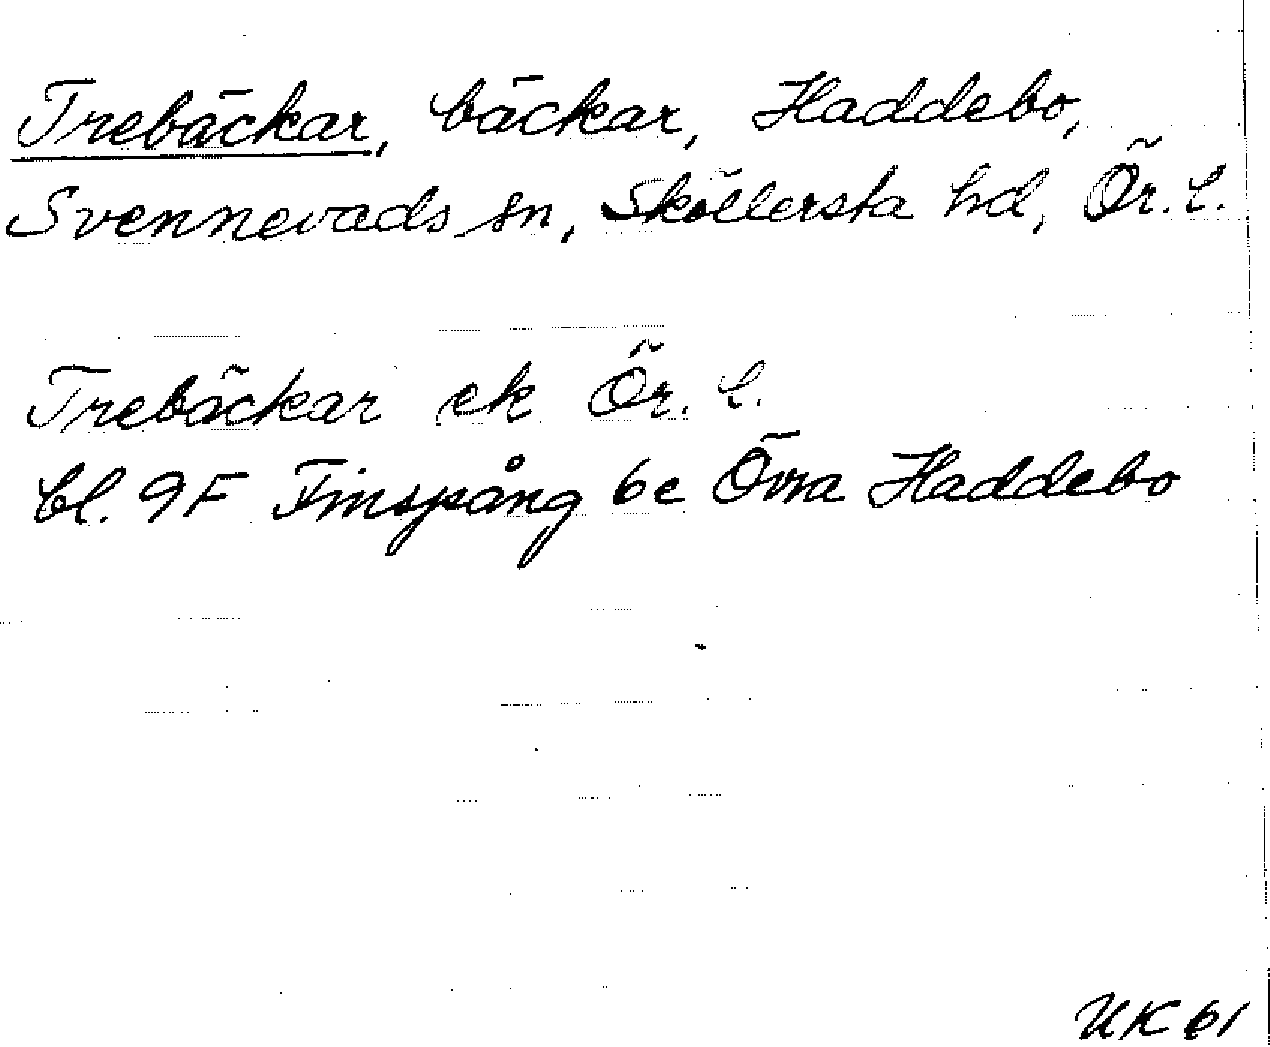 Trebäckar, bäckar, Haddebo,
Svennevads sn, Sköllersta hd, Ör. l.
Trebäckar ek Ör. l.
bl. 9F Finspång 6e Övra Haddebo
UK 61